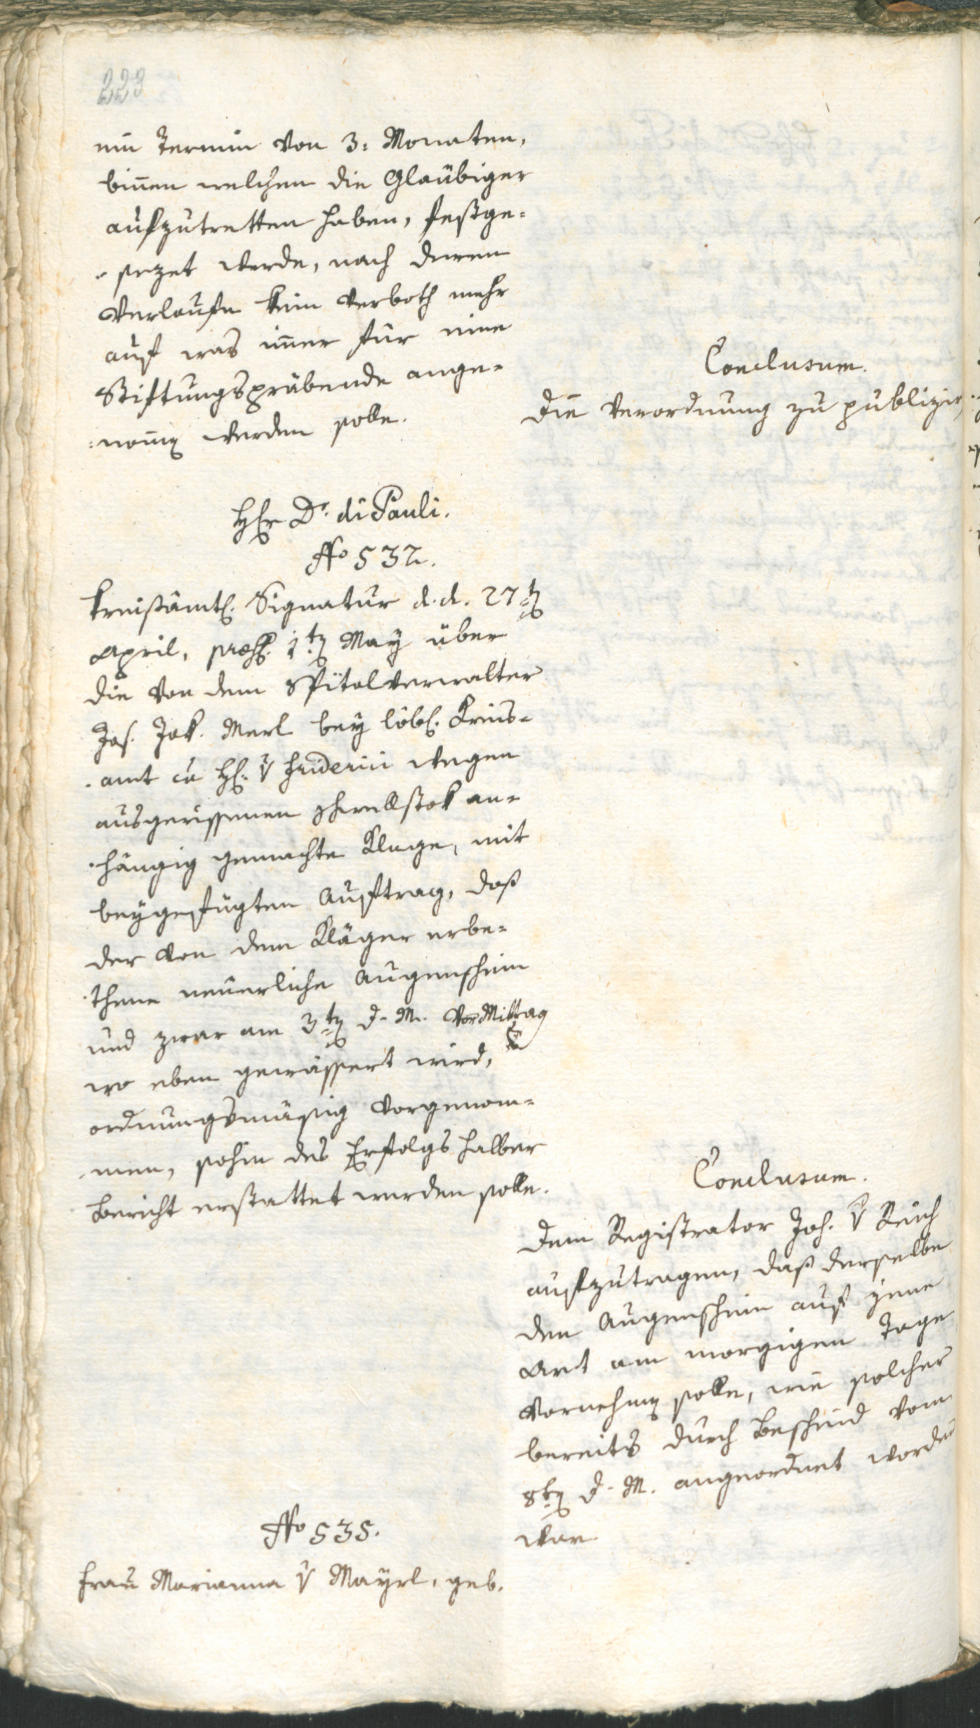 223
ein Termin von 3: Monaten,
binnen welchen die Glaübiger
aufzutretten haben, festge-
sezet werde, nach deren
Verlaufe kein Verboth mehr
auf was immer für eine
Stiftungspräbende ange-
nommen werden solle.
Conclusum.
Die Verordnung zu publizir
Herr Dr. di Pauli.
No 532.
Kreisämtl. Signatur d. d. 27ten
April, praes. 1ten May über
die von dem Spitalverwalter
Jos. Jak. Merl bey löbl. Kreis-
amt ca H. v Friderici wegen
ausgerissenen Schwellstok an-
hängig gemachte Klage, mit
beygefügten Auftrag, daß
der von dem Kläger erbe-
thene neuerliche Augenschein
und zwar am 3ten d. M. Vor Mittag
wo eben gewässert wird,
ordnungsmäßig vorgenom-
men, sohin des Erfolgs halber
Bericht erstattet werden solle.
Conclusum.
Dem Registrator Joh. v
aufzutragen, daß derselbe
den Augenschein auf jene
Art am morgigen Tage
vornehmen solle, wie solcher
bereits durch Bescheid vom
8ten d. M. angeordnet worden
war
No 535.
Frau Marianna v Mayrl, geb.